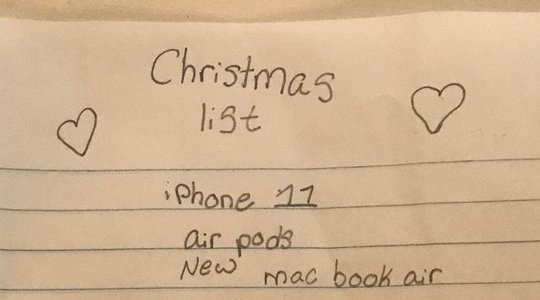 Christmas
list
iPhone 11
air pods
New mac book air